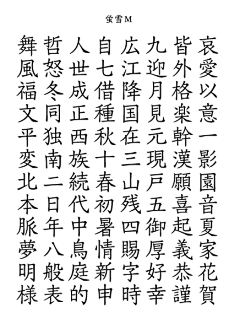 蛍雪M
哀愛以意一影園音夏家花賀
皆外格楽幹漢願喜起義恭謹
九迎月見元現戸五御厚好幸
広江降国在三山残四賜字時
自七借種秋十春初暑情新申
人世成正西族続代中鳥庭的
哲怒冬同独南二日年八般表
舞風福文平変北本脈夢明様